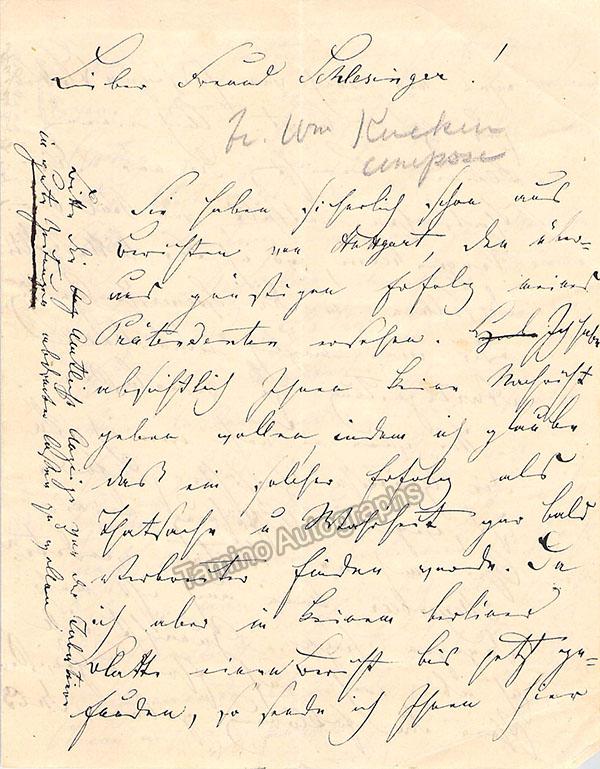 Lieber Freund Schlesinger!
Fr. Wm Kucken
compose
Sie haben sicherlich schon aus
Berichten von Stuttgart, den über=
aus günstigen Erfolg meines
Prätendenten ersehen. Ich habe
absichtlich Ihnen keine Nachricht
geben wollen, indem ich glaube
daß ein solcher Erfolg als
Thatsache u Wahrheit gar bald
Verbreiter finden werde. Da
ich aber in keinem berliner
Blatte einen Bericht bis jetzt ge=
funden, so sende ich Ihnen hier
Bitte die Anzeige der
in gute abdrucken lassen zu wollen
Tamino Autographs